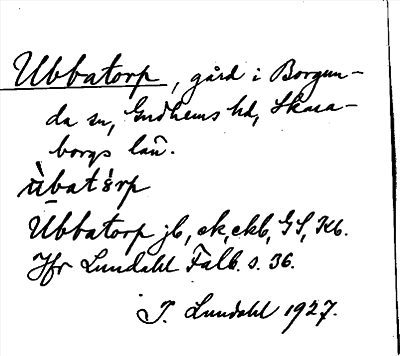 Ubbatorp, gård i Borgun-
da sn, Gudhems hd, Skara-
borgs län.
ùbatàrp
Ubbatorp jb, ek, ekb, GS, Kb.
Jfr Lundahl Falb. s. 36.
I. Lundahl 1927.